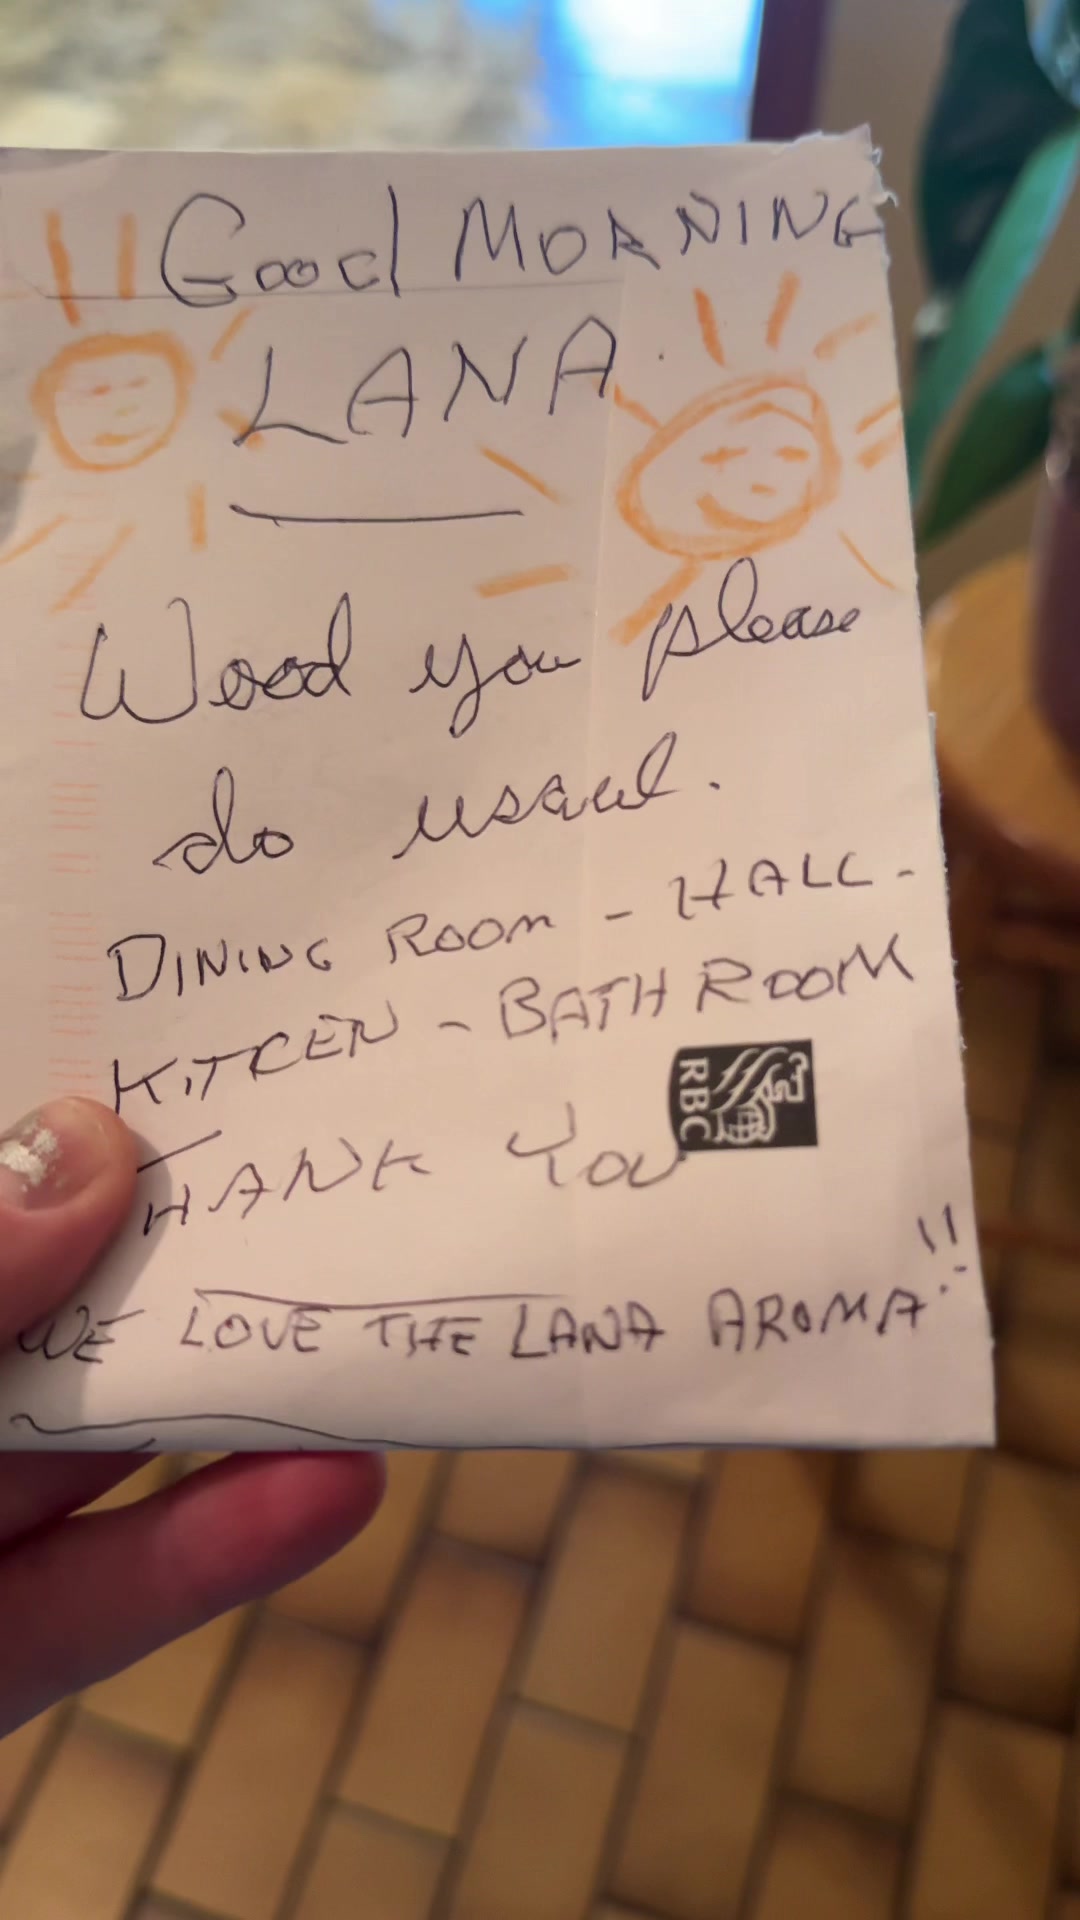 Good MORNING
LANA.
Wood you please
do usaul.
DINING ROOM - HALL -
KITCEN - BATHROOM
THANK YOU
RBC
WE LOVE THE LANA AROMA!!